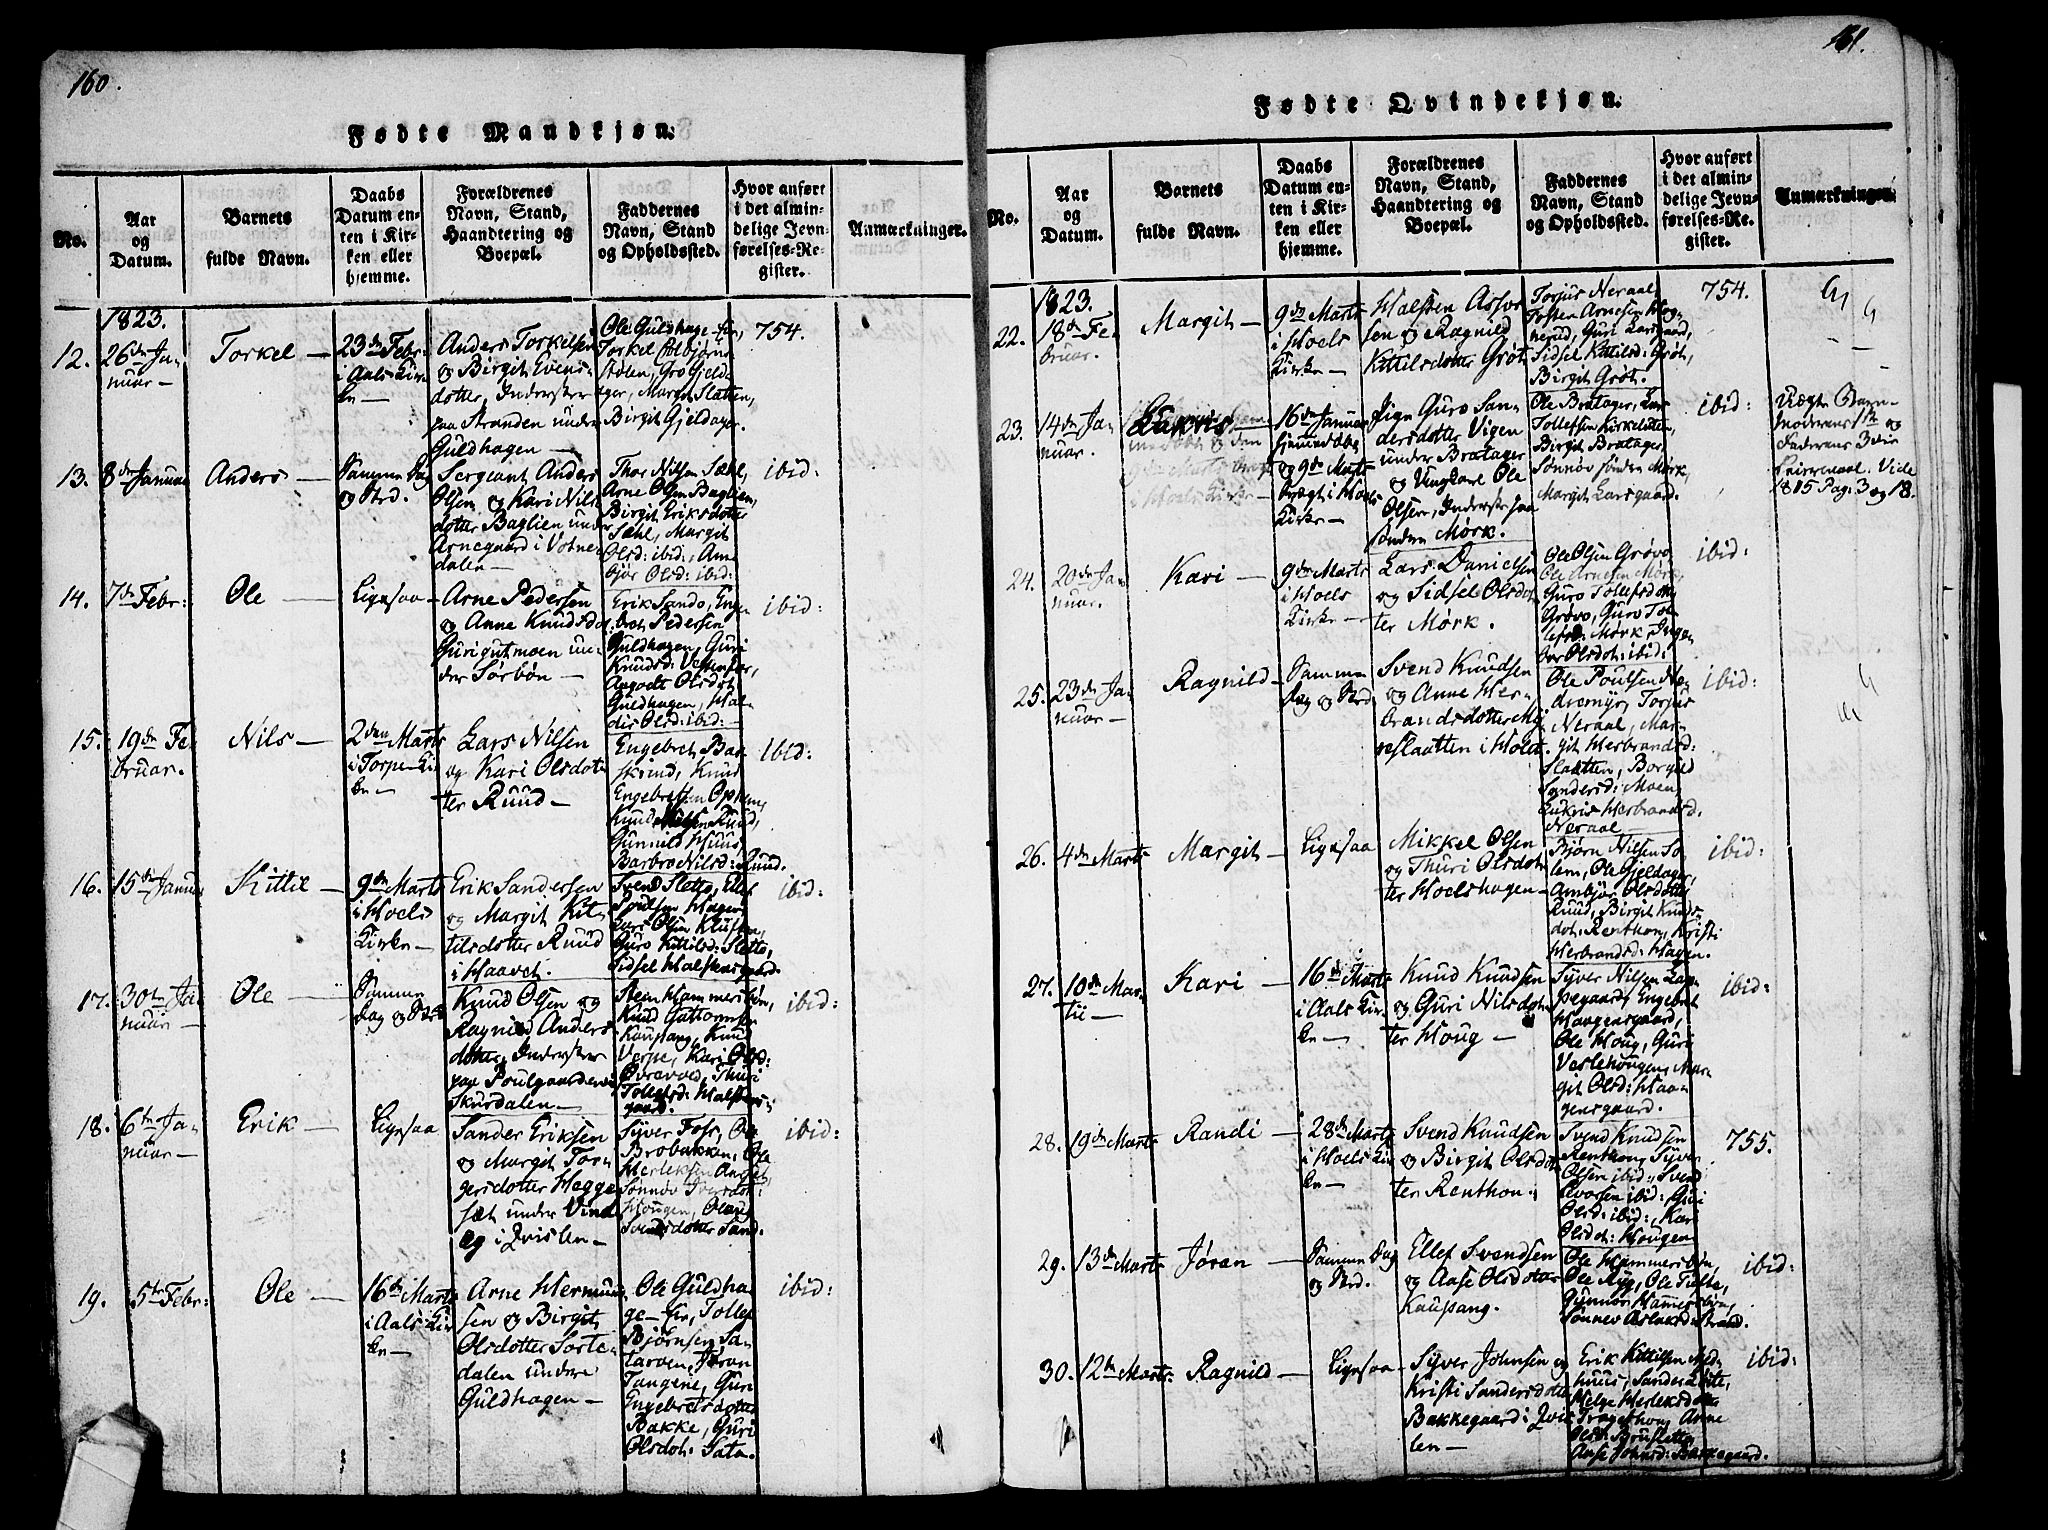 160.
Fødte Mandkjøn.
No.
Aar
og
Datum.
Barnets
fulde Navn.
Daabs
Datum en-
ten i Kir-
ken eller
hjemme.
Forældrenes
Navn, Stand,
Haandtering og
Boepæl.
Faddernes
Navn, Stand
og Opholdssted.
Hvor anført
i det almin-
delige Jevn-
førelses-Re-
gister.
Anmærkninger.
1823.
12.
26de Ja-
nuar —
Torkel —
23de Febr:
i Aals Kir-
ke —
Anders Torkelsen
og Birgit Evens-
dotter, Inderster
paa Stranden under
Guldhagen —
Ole Guldhage
Torkel
Stolen, Gro Gjeld-
ager, Margit Slatten,
Birgit Gjeldager.
754.
13.
8de Januar
Anders —
Samme Dag
og Sted.
Sergeant Anders
Olsen og Kari Nils-
dotter Baglien under
Arnegaard i Votne-
dalen —
Thor Nilsen Sæhl,
Arne Olsen Baglien,
Birgit Eriksdotter
Sæhl, Margit
Olsd: ibid:, Anne
bjør Olsd: ibid:
ibid:
14.
7de Febr:
Ole —
Ligesaa —
Arne Pedersen
og Anne Knudsdot
Gurigutmoen un-
der Sørbøn —
Erik Sando, Enge-
bret Pedersen
Guldhagen, Guri
Knudsd:
Olsdot
Guldhagen,
Olsd: ibid: —
ibid:
15.
19de Fe-
bruar.
Nils —
2den Marts
i Torpe Kir-
ke —
Lars Nilsen
og Kari Olsdot-
ter Ruud —
Engebret Ba-
skind, Knud
Engebretsen Ophem,
Knud Nilsen Ruud,
Gunnild Huus,
Barbro Nilsd: Ruud.
ibid:
16.
15de Januar
Kittil —
9de Marts
i Hoels
Kirke —
Erik Sandersen
og Margit Kit-
tilsdotter Ruud
i Haavet.
Svend Sletto, Ellef
Poulsen Hagen
Lars Olsen
Guro Kittilsd: Sletto,
Sidsel Halstensgaard.
ibid:
17.
30te Ja-
nuar —
Ole —
Samme
Dag og Sted
Knud Olsen og
Ragnild Anders-
dotter, Inderster
paa Poulgaarden i
Skurdalen —
Sten Hammersbøn,
Knud Guttormsen
Kaupang, Knud
Verpe, Kari Olsd:
Øvrevold, Thuri
Tollefsd: Halstens-
gaard.
ibid:
18.
6te Ja-
nuar —
Erik —
Ligesaa
Sander Eriksen
og Margit Tor-
gersdotter Hegge
sæt under Vind-
eg i Qvislen —
Syver Foss, Ole
Brobakken, Ole
Herleksen
Sønnøv Iversdot:
Hougen,
Svendsdotter Sand.
ibid:
19.
5te Febr:
Ole —
16de Marts
i Aals Kir-
ke —
Arne Hermund-
sen og Birgit
Olsdotter Sorte-
dalen under
Guldhagen —
Ole Guldha-
ge — Tollef
Bjørnsen Sa-
tarven, Jøran
Tangene, Guri
Engebretsdotter
Bakke, Guri
Olsdot: Sata.
ibid:
161.
Fødte Qvindekjøn.
No.
Aar
og
Datum.
Barnets
fulde Navn.
Daabs
Datum en-
ten i Kir-
ken eller
hjemme.
Forældrenes
Navn, Stand,
Haandtering og
Boepæl.
Faddernes
Navn, Stand
og Opholdssted.
Hvor anført
i det almin-
delige Jevn-
førelses-Re-
gister.
Anmærkninger.
1823.
22.
18de Fe-
bruar.
Margit —
9de Marts
i Hoels
Kirke —
Halsten Asvor-
sen og Ragnild
Kittilsdotter Grøt
Torjus Neraal,
Tosten Arnesen Meg-
nerud, Guri Larsgaard,
Sidsel Kittilsd: Grøt,
Birgit Grøt.
754.
23.
14de Ja-
nuar.
Lukris —
16de Januar
hjemmedøbt
og 9de Marts
frægt i Hoels
Kirke —
Pige Guro San-
dersdotter Vigen
under Bratager
og Ungkarl Ole
Olsen, Inderste paa
Søndre Mørk.
Ole Bratager, Lars
Tollefsen Kirkesletten,
Birgit Bratager,
Sønnøv søndre Mørk,
Margit Larsgaard.
ibid:
Uægte Barn.
Moderens 1te og
Faderens 3die
Leiermaal. Vide
1815 Pag: 3 og 18.
24.
20de Ja-
nuar.
Kari —
9de Marts
i Hoels
Kirke —
Lars Danielsen
og Sidsel Olsdot-
ter Mørk.
Ole Olsen Grøvo,
Ole Arnesen Mørk,
Guro Tollefsdot:
Grøvo, Guro Tol-
lefsd: Mørk, Inge-
bor Olsdot: ibid:
ibid:
25.
23de Ja-
nuar —
Ragnild —
Samme
Dag og Sted
Svend Knudsen
og Anne Her-
brandsdotter My-
reslaatten i Holet.
Ole Poulsen Ne-
dremyr, Torjus
Neraal, Mar-
git Herbrandsd:
Slaatten, Borgild
Sandersd: Moen,
Lukris Herbrandsd:
Neraal
ibid:
26.
4de Marts
Margit —
Ligesaa
Mikkel Olsen
og Thuri Olsdot-
ter Hoelshagen —
Bjørn Nilsen So-
lem, Ole Gjeldager,
Ambjør Olsdotter
Ruud, Birgit Knuds-
dot: Renthon, Kristi
Herbrandsd: Hagen.
ibid:
27.
10de Mar-
tii —
Kari —
16de Marts
i Aals Kir-
ke —
Knud Knudsen
og Guri Nilsdot-
ter Houg —
Syver Nilsen Lap-
pegaard, Engebret
Haugensgaard,
Ole Houg, Guri
Veslehougen, Mar-
git Olsd: Haa-
gensgaard.
ibid:
28.
19de Marts
Randi —
28de Marts
i Hoels Kir-
ke —
Svend Knudsen
og Birgit Olsdot-
ter Renthon.
Svend Knudsen
Renthon, Syver
Olsen ibid:, Svend
ibid: Guri
Olsd: ibid:, Kari
Olsdot: Hougen
755.
29.
13de Marts
Jøran —
Samme Dag
og Sted.
Ellef Svendsen
og Aase Olsdotter
Kaupang.
Ole Hammersbøn,
Ole Ryg, Ole Tufte,
Gunnor Hammersbøn,
Sønnev Aslaksd: Strand.
ibid:
30.
12te Marts
Ragnild —
Ligesaa —
Syver Johnsen og
Kristi Sandersdotter
Bakkegaard i Qvis-
len —
Erik Kittilsen Med-
huus, Sander Lotte,
Helge Herleksdot:
Tragethon, Anne
Olsd: Bruslette,
Aase Johnsd: Bakkegaard.
ibid: